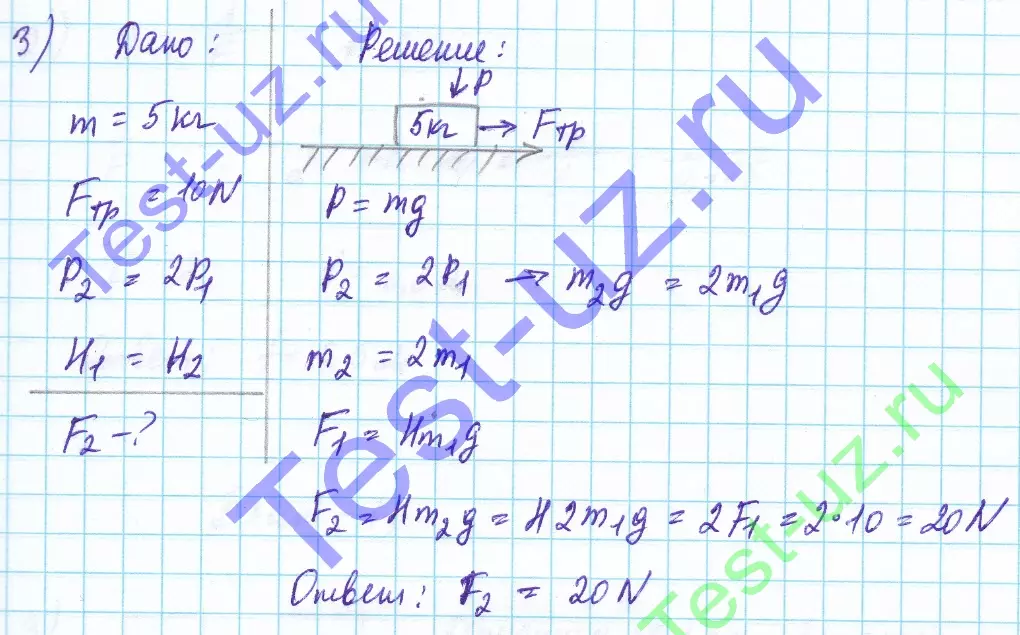 3) Дано:
m = 5 кг
Fтр = 10N
P₂ = 2P₁
H₁ = H₂
F₂ - ?
Решение:
↓P
5кг → Fтр
P = mg
P₂ = 2P₁ → m₂g = 2m₁g
m₂ = 2m₁
F₁ = Hm₁g
F₂ = Hm₂g = H2m₁g = 2F₁ = 2·10 = 20N
Ответ: F₂ = 20N
Test-uz.ru
Test-uz.ru
Test-uz.ru